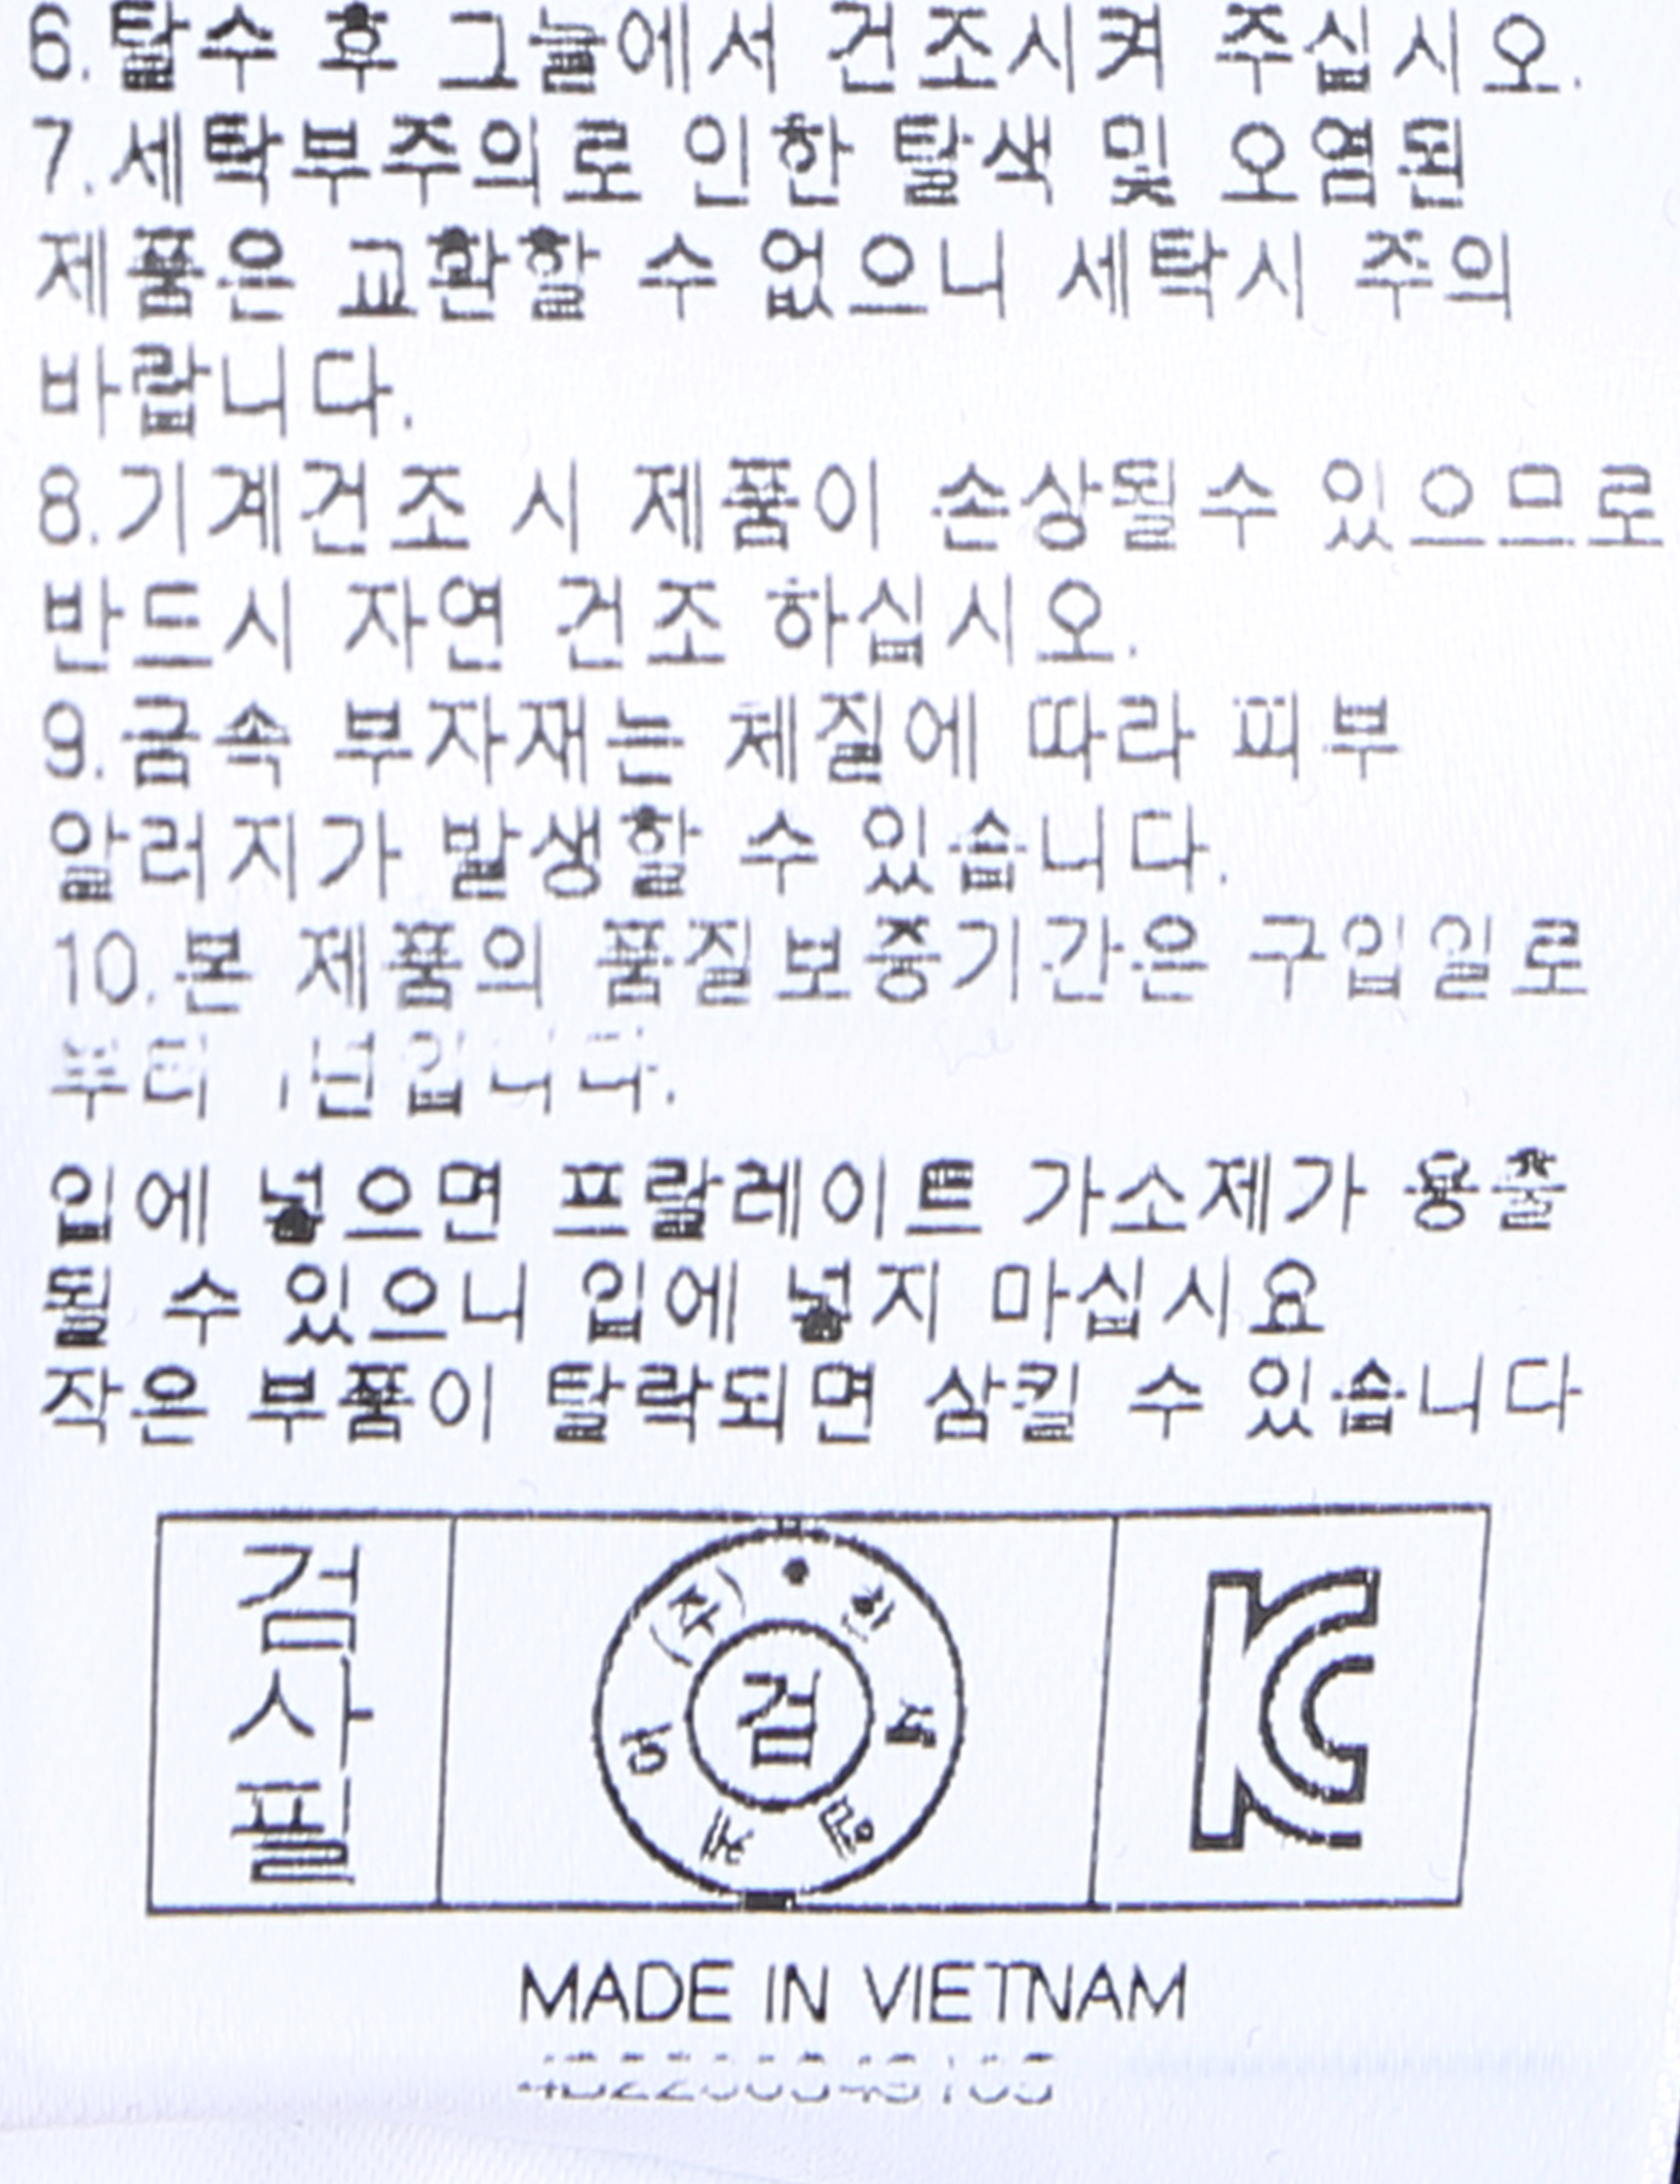 6.탈수 후 그늘에서 건조시켜 주십시오.
7.세탁부주의로 인한 탈색 및 오염된
제품은 교환할 수 없으니 세탁시 주의
바랍니다.
8.기계건조 시 제품이 손상될수 있으므로
반드시 자연 건조 하십시오.
9.금속 부자재는 체질에 따라 피부
알러지가 발생할 수 있습니다.
10.본 제품의 품질보증기간은 구입일로
부터 1년입니다.
입에 넣으면 프탈레이트 가소제가 용출
될 수 있으니 입에 넣지 마십시요
작은 부품이 탈락되면 삼킬 수 있습니다
검사필
검
KC
MADE IN VIETNAM